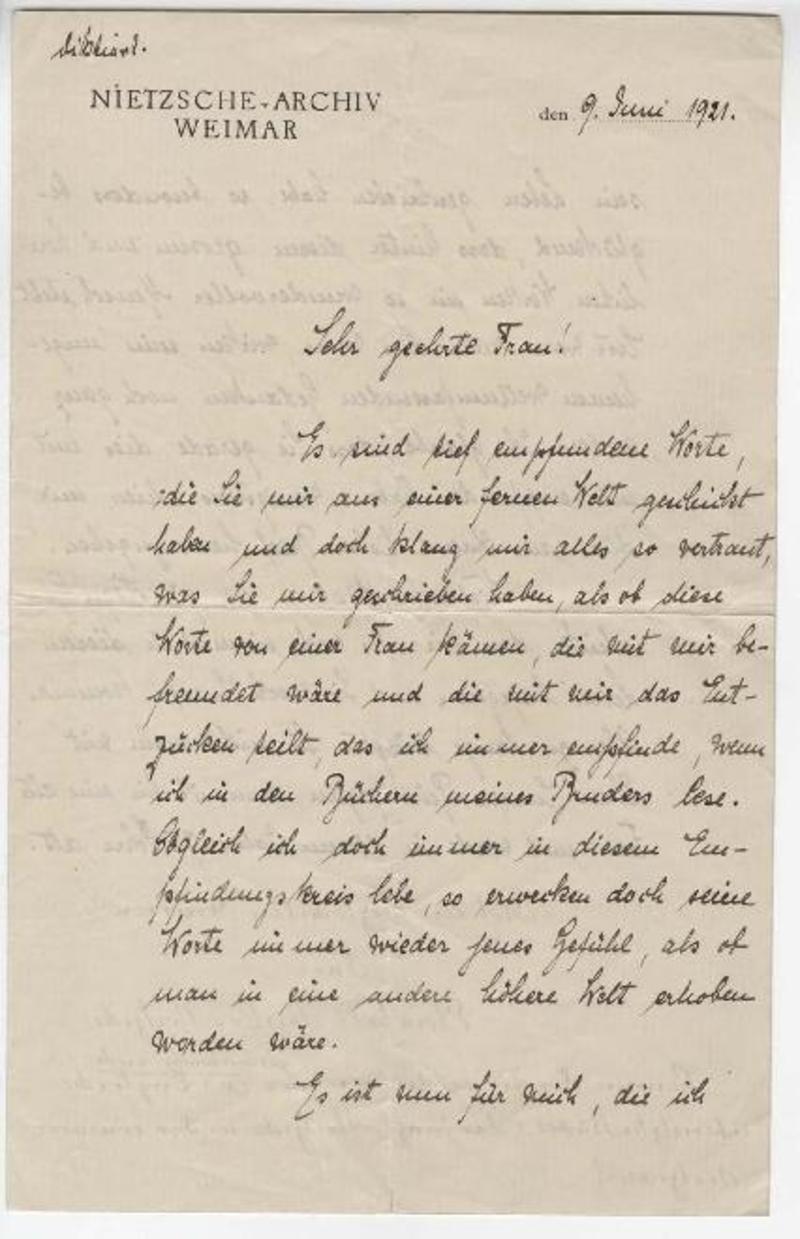 Diktiert.
NIETZSCHE-ARCHIV
WEIMAR
den 9. Juni 1921.
Sehr geehrte Frau!
Es sind tief empfundene Worte,
die Sie mir aus einer fernen Welt geschickt
haben und doch klang mir alles so vertraut,
was Sie mir geschrieben haben, als ob diese
Worte von einer Frau kämen, die mit mir be-
freundet wäre und die mit mir das Ent-
zücken teilt, das ich immer empfinde, wenn
ich in den Büchern meines Bruders lese.
Obgleich ich doch immer in diesem Em-
pfindungskreis lebe, so erwecken doch seine
Worte immer wieder jenes Gefühl, als ob
man in eine andere höhere Welt erhoben
worden wäre.
Es ist nun für mich, die ich